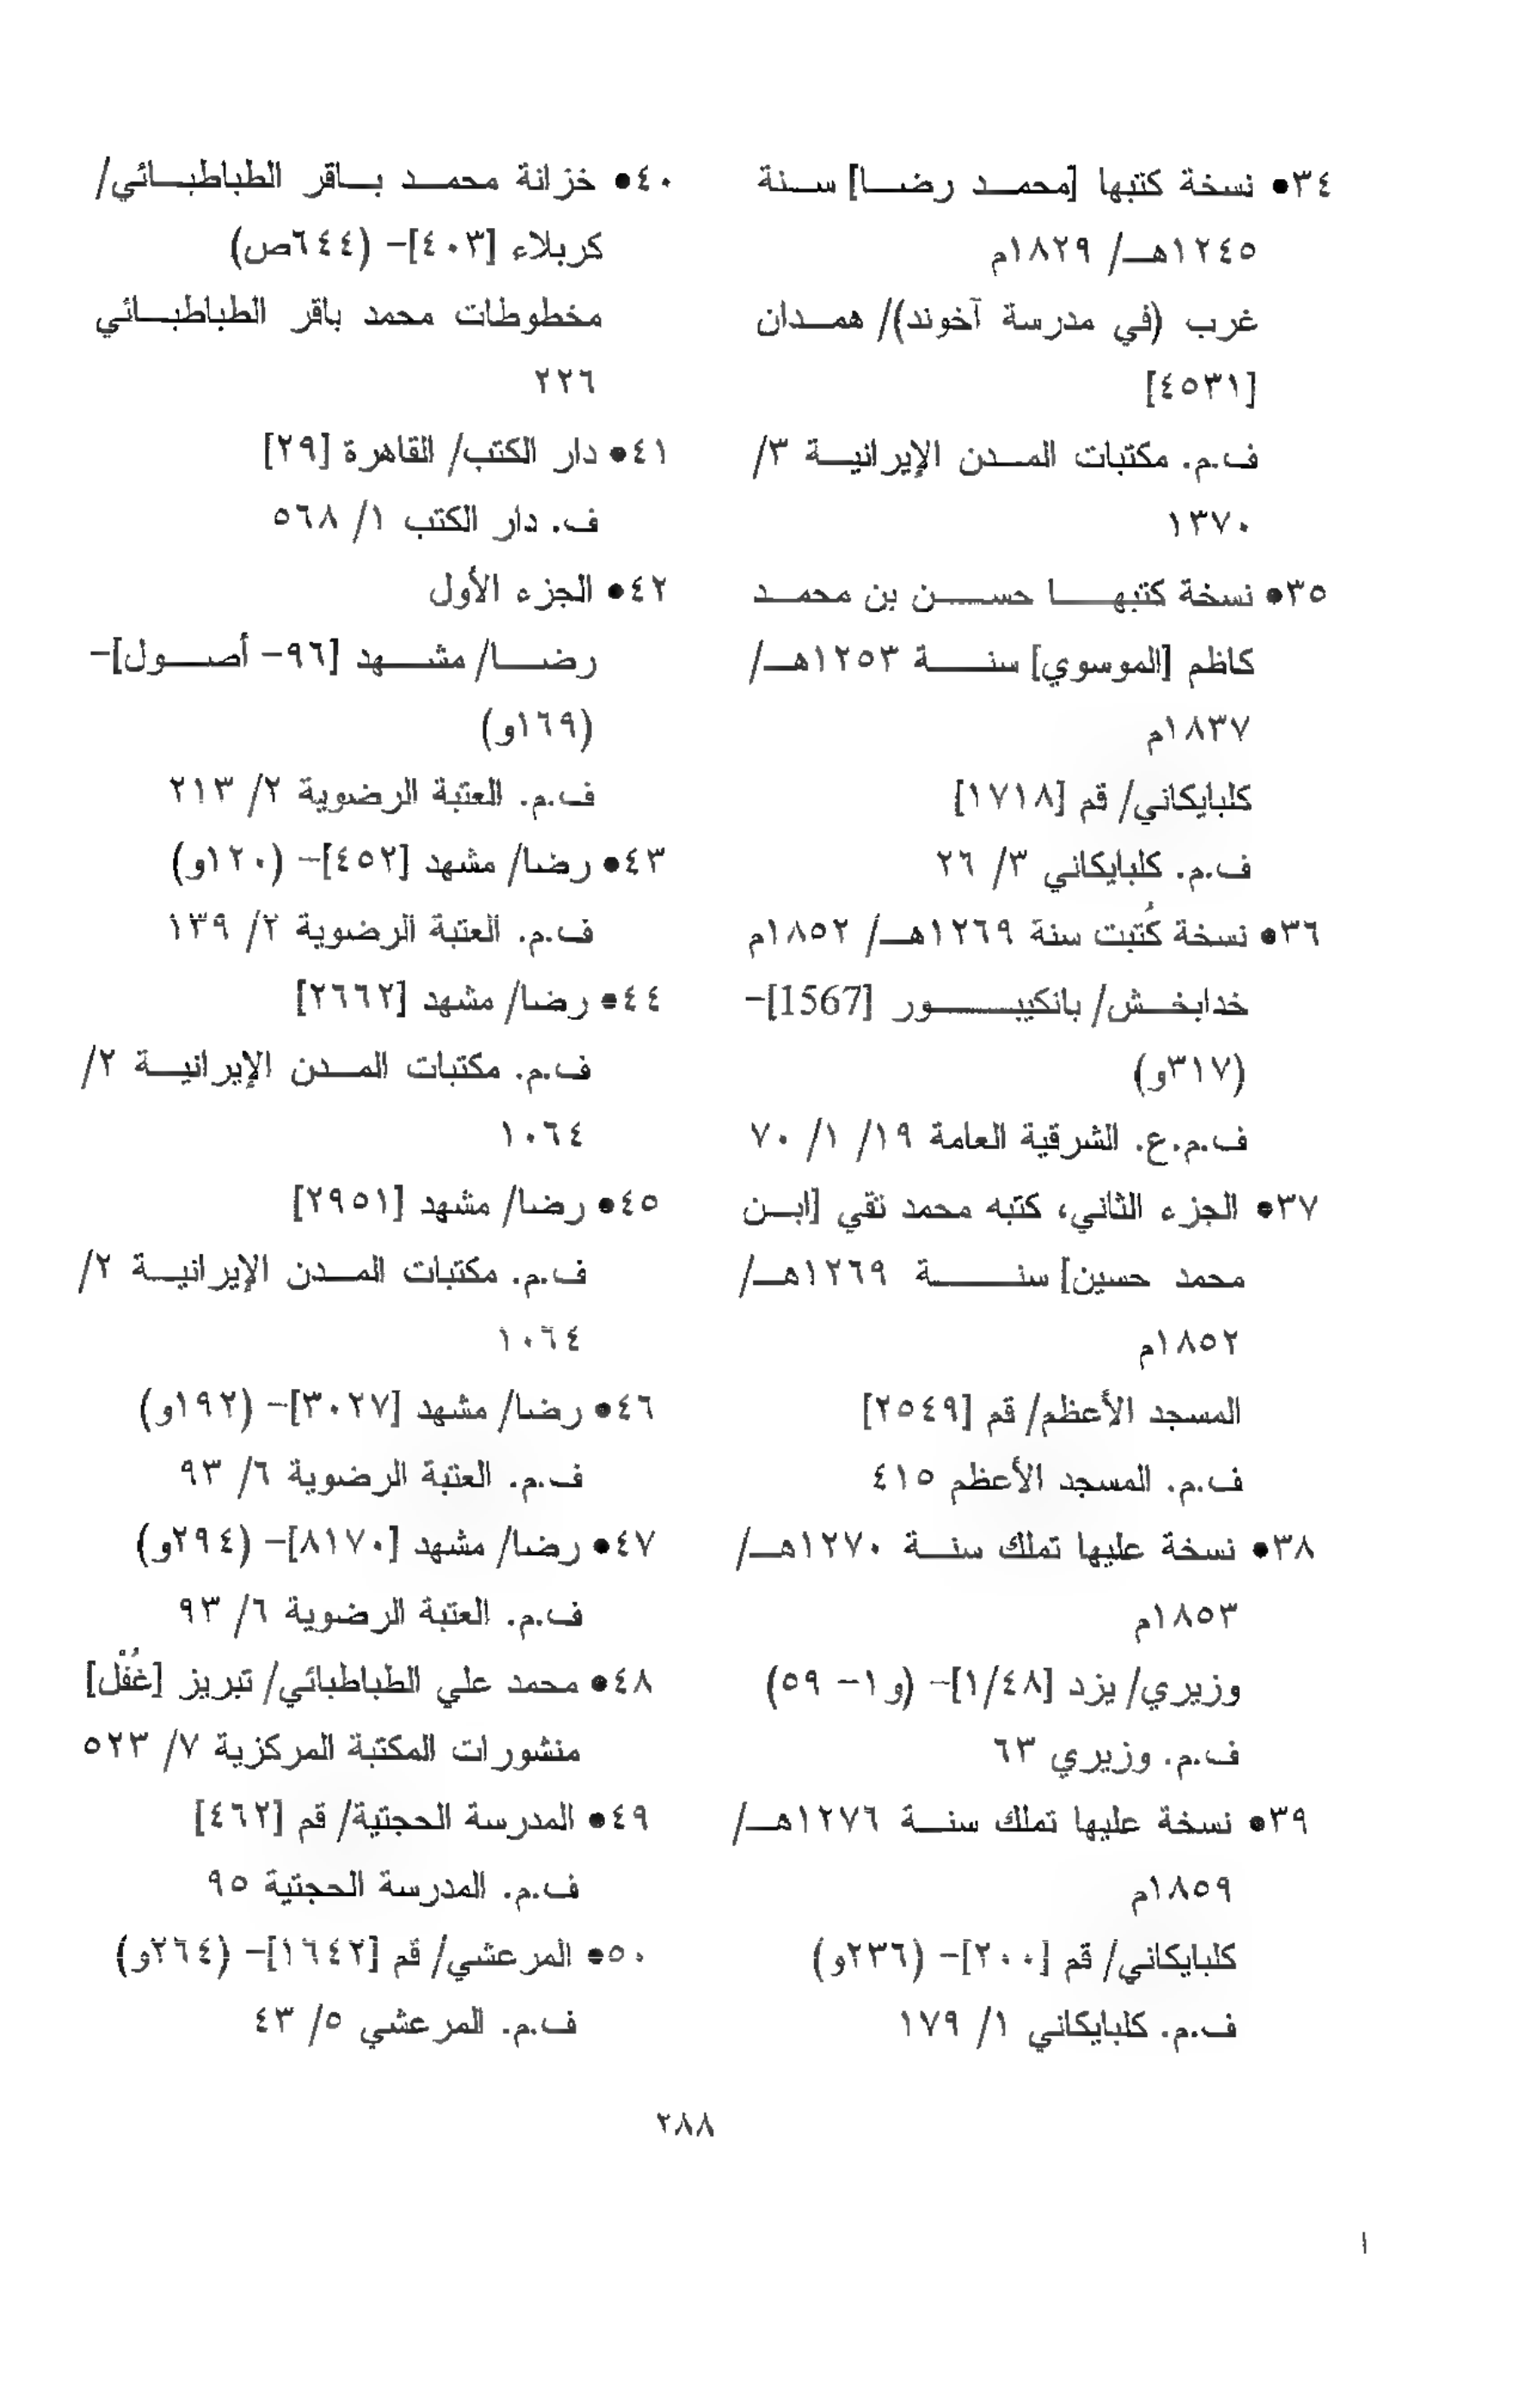 ٣٤• نسخة كتبها [محمد رضا] سنة
١٢٤٥هـ/ ١٨٢٩م
غرب (في مدرسة آخوند)/ همدان
[٤٥٣١]
ف.م. مكتبات المدن الإيرانية ٣/
١٣٧٠
٣٥• نسخة كتبها حسن بن محمد
كاظم [الموسوي] سنة ١٢٥٣هـ/
١٨٣٧م
كلبايكاني/ قم [١٧١٨]
ف.م. كلبايكاني ٣/ ٢٦
٣٦• نسخة كُتبت سنة ١٢٦٩هـ/ ١٨٥٢م
خدابخش/ بانكيبور [1567]-
(٣١٧و)
ف.م.ع. الشرقية العامة ١٩/ ١/ ٧٠
٣٧• الجزء الثاني، كتبه محمد تقي [ابن
محمد حسين] سنة ١٢٦٩هـ/
١٨٥٢م
المسجد الأعظم/ قم [٢٥٤٩]
ف.م. المسجد الأعظم ٤١٥
٣٨• نسخة عليها تملك سنة ١٢٧٠هـ/
١٨٥٣م
وزيري/ يزد [١/٤٨]- (و١- ٥٩)
ف.م. وزيري ٦٣
٣٩• نسخة عليها تملك سنة ١٢٧٦هـ/
١٨٥٩م
كلبايكاني/ قم [٢٠٠]- (٢٣٦و)
ف.م. كلبايكاني ١/ ١٧٩
٤٠• خزانة محمد باقر الطباطبائي/
كربلاء [٤٠٣]- (٦٤٤ص)
مخطوطات محمد باقر الطباطبائي
٢٢٦
٤١• دار الكتب/ القاهرة [٢٩]
ف. دار الكتب ١/ ٥٦٨
٤٢• الجزء الأول
رضا/ مشهد [٩٦- أصول]-
(١٦٩و)
ف.م. العتبة الرضوية ٢/ ٢١٣
٤٣• رضا/ مشهد [٤٥٢]- (١٢٠و)
ف.م. العتبة الرضوية ٢/ ١٣٩
٤٤• رضا/ مشهد [٢٦٦٢]
ف.م. مكتبات المدن الإيرانية ٢/
١٠٦٤
٤٥• رضا/ مشهد [٢٩٥١]
ف.م. مكتبات المدن الإيرانية ٢/
١٠٦٤
٤٦• رضا/ مشهد [٣٠٢٧]- (١٩٢و)
ف.م. العتبة الرضوية ٦/ ٩٣
٤٧• رضا/ مشهد [٨١٧٠]- (٢٩٤و)
ف.م. العتبة الرضوية ٦/ ٩٣
٤٨• محمد علي الطباطبائي/ تبريز [غُفْل]
منشورات المكتبة المركزية ٧/ ٥٢٣
٤٩• المدرسة الحجتية/ قم [٤٦٢]
ف.م. المدرسة الحجتية ٩٥
٥٠• المرعشي/ قم [١٦٤٢]- (٢٦٤و)
ف.م. المرعشي ٥/ ٤٣
٢٨٨